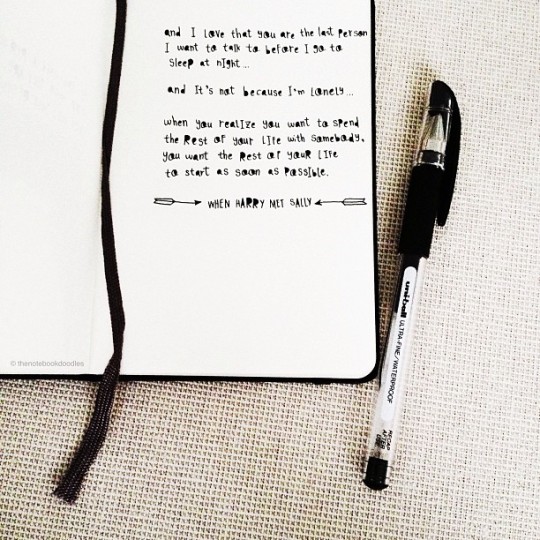 and I love that you are the last person
I want to talk to before I go to
sleep at night...
and It's not because I'm lonely...
when you realize you want to spend
the Rest of your life with somebody,
you want the Rest of youR life
to start as soon as possible.
WHEN HARRY MET SALLY
© thenotebookdoodles
uni-ball ULTRA-FINE/WATERPROOF